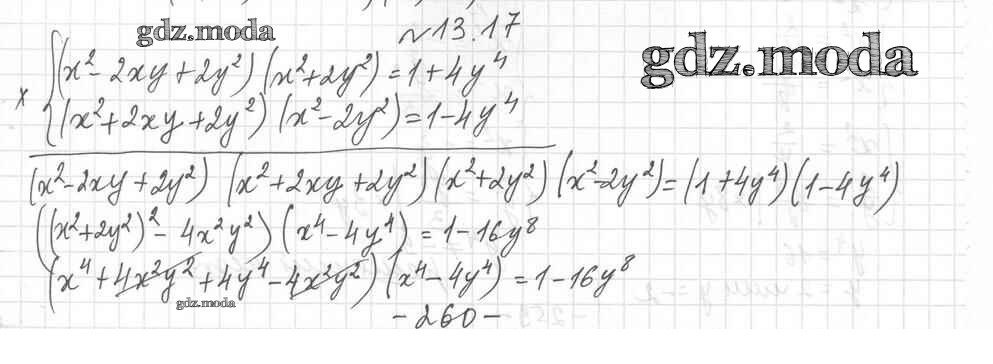 №13.17
gdz.moda
gdz.moda
(x² - 2xy + 2y²) (x² + 2y²) = 1 + 4y⁴
x
(x² + 2xy + 2y²) (x² - 2y²) = 1 - 4y⁴
(x² - 2xy + 2y²) (x² + 2xy + 2y²) (x² + 2y²) (x² - 2y²) = (1 + 4y⁴) (1 - 4y⁴)
((x² + 2y²)² - 4x²y²) (x⁴ - 4y⁴) = 1 - 16y⁸
(x⁴ + 4x²y² + 4y⁴ - 4x²y²) (x⁴ - 4y⁴) = 1 - 16y⁸
gdz.moda
- 260 -